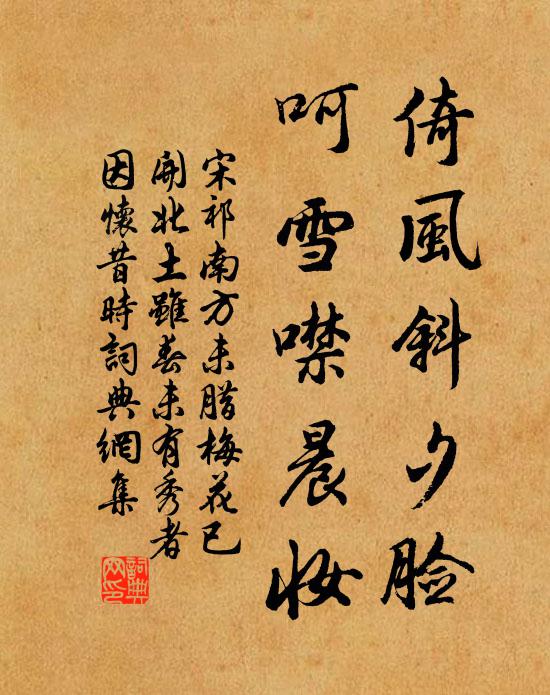 倚風斜夕脸
呵雪噤晨妆
宋祁南方未腊梅花已
開北土雖春未有秀者
因懷昔時詞典網集
詞典
网印